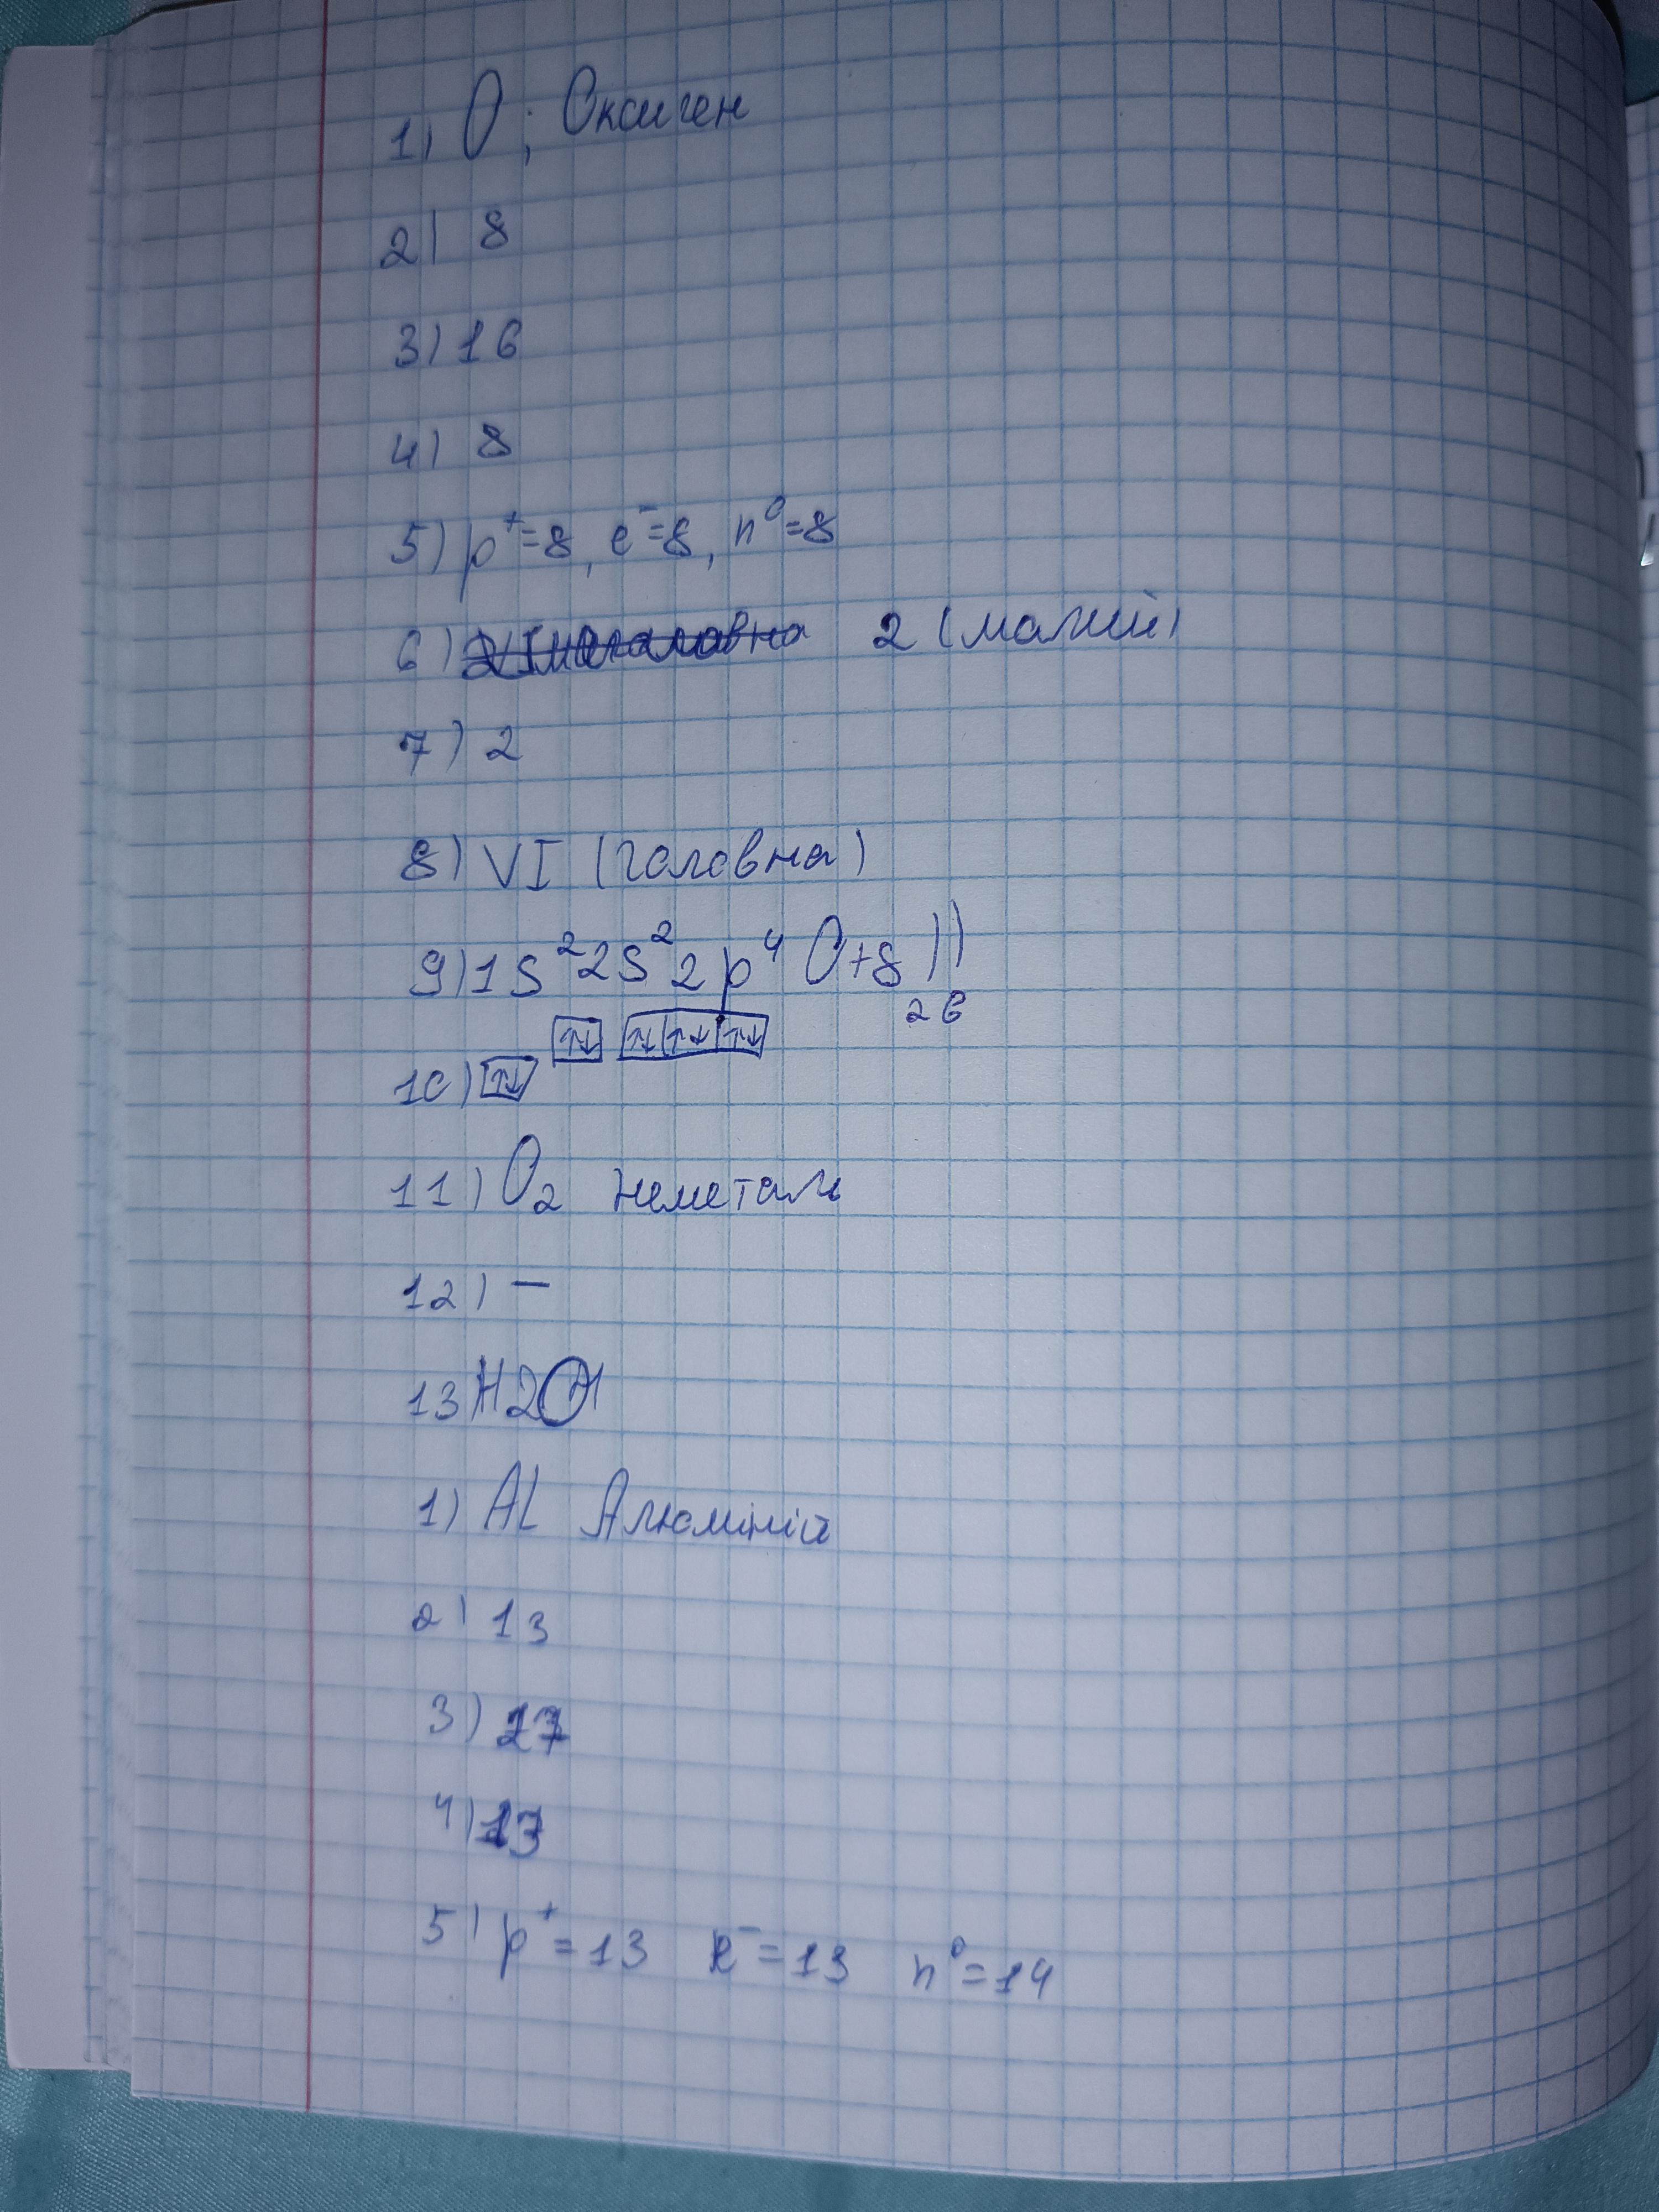 1) O; Оксиген
2) 8
3) 16
4) 8
5) p⁺=8, e⁻=8, n⁰=8
6) 2 (малий)
7) 2
8) VI (головна)
9) 1S²2S²2p⁴ O+8 ))
2 6
↑↓ ↑↓ ↑↓ ↑↓
10) ↑↓
11) O₂ неметаль
12) —
13) H2O
1) AL Алюміній
2) 13
3) 27
4) 13
5) p⁺=13 e⁻=13 n⁰=14